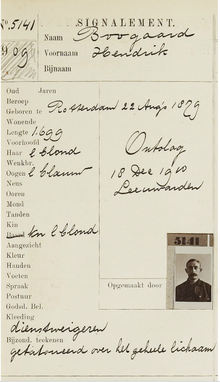 No. 5141 SIGNALEMENT.
909 Naam Boogaard
Voornaam Hendrik
Bijnaam
Oud Jaren
Beroep
Geboren te Rotterdam 22 Aug's 1879
Wonende
Lengte 1.699
Voorhoofd
Haar blond
Wenkbr.
Oogen blauw
Neus
Ooren
Mond
Tanden
Kin
Baard kn blond
Aangezicht
Kleur
Handen
Voeten
Spraak
Postuur
Godsd. Bel.
Kleeding
Ontslag
18 Dec 1910
Leeuwarden
Opgemaakt door
5141
dienstweigeren
Bijzond. teekenen
getatoueerd over het geheele lichaam